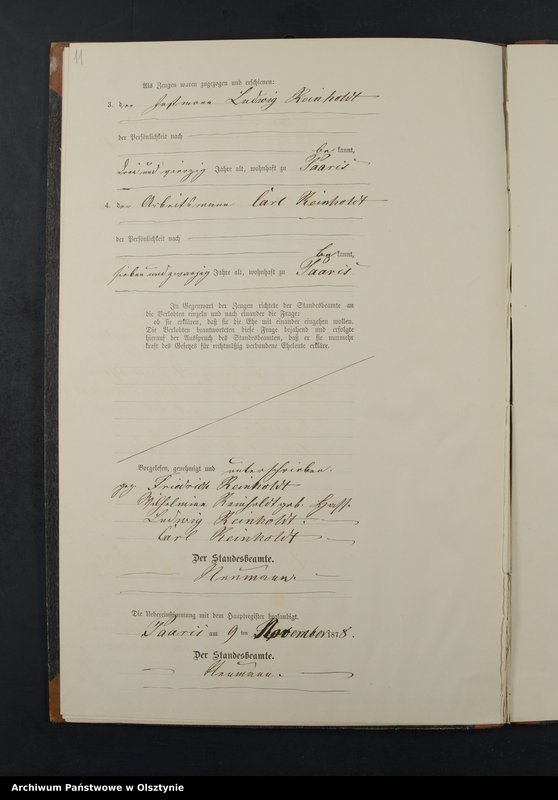 11
Als Zeugen waren zugezogen und erschienen:
3. der Instmann Ludwig Reinholdt
der Persönlichkeit nach
be kannt,
drei und vierzig Jahre alt, wohnhaft zu Paaris
4. der Arbeitsmann Carl Reinholdt
der Persönlichkeit nach
be kannt,
sieben und zwanzig Jahre alt, wohnhaft zu Paaris
In Gegenwart der Zeugen richtete der Standesbeamte an
die Verlobten einzeln und nach einander die Frage:
ob sie erklären, daß sie die Ehe mit einander eingehen wollen.
Die Verlobten beantworteten diese Frage bejahend und erfolgte
hierauf der Ausspruch des Standesbeamten, daß er sie nunmehr
kraft des Gesetzes für rechtmäßig verbundene Eheleute erkläre.
Vorgelesen, genehmigt und unterschrieben.
gez. Friedrich Reinholdt
Wilhelmine Reinholdt geb.
Ludwig Reinholdt.
Carl Reinholdt
Der Standesbeamte.
Neumann.
Die Uebereinstimmung mit dem Hauptregister beglaubigt.
Paaris am 9 ten November 1878.
Der Standesbeamte.
Neumann.
Archiwum Państwowe w Olsztynie